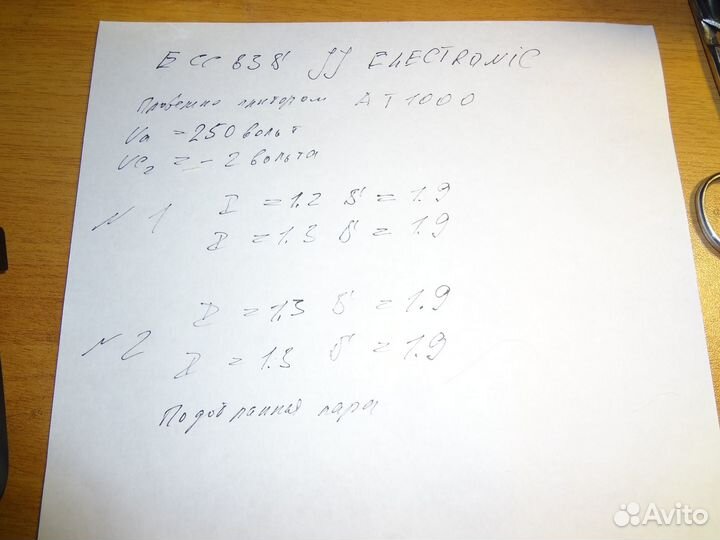 ECC83S JJ ELECTRONIC
Проверено прибором AT1000
Ua = 250 вольт
UG2 = - 2 вольта
I = 1.2 S = 1.9
N 1
I = 1.3 S = 1.9
I = 1.3 S = 1.9
N 2
I = 1.3 S = 1.9
Подобранная пара
Avito